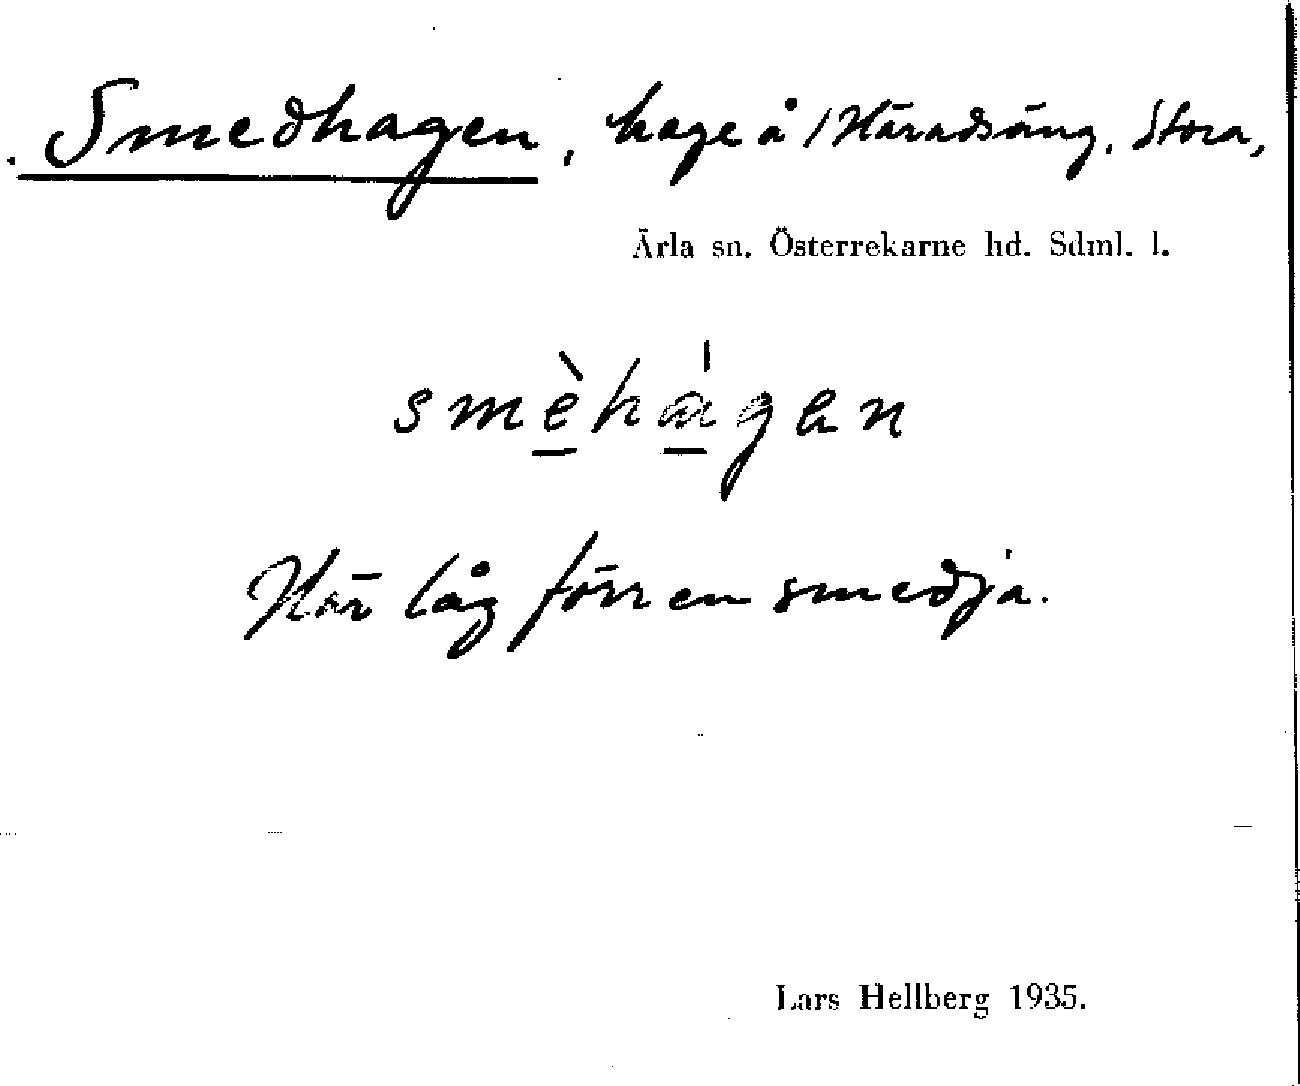 Smedhagen, hage å / Häradsäng, Stora,
Ärla sn. Österrekarne hd. Sdml. l.
smèhágen
Här låg förr en smedja.
Lars Hellberg 1935.